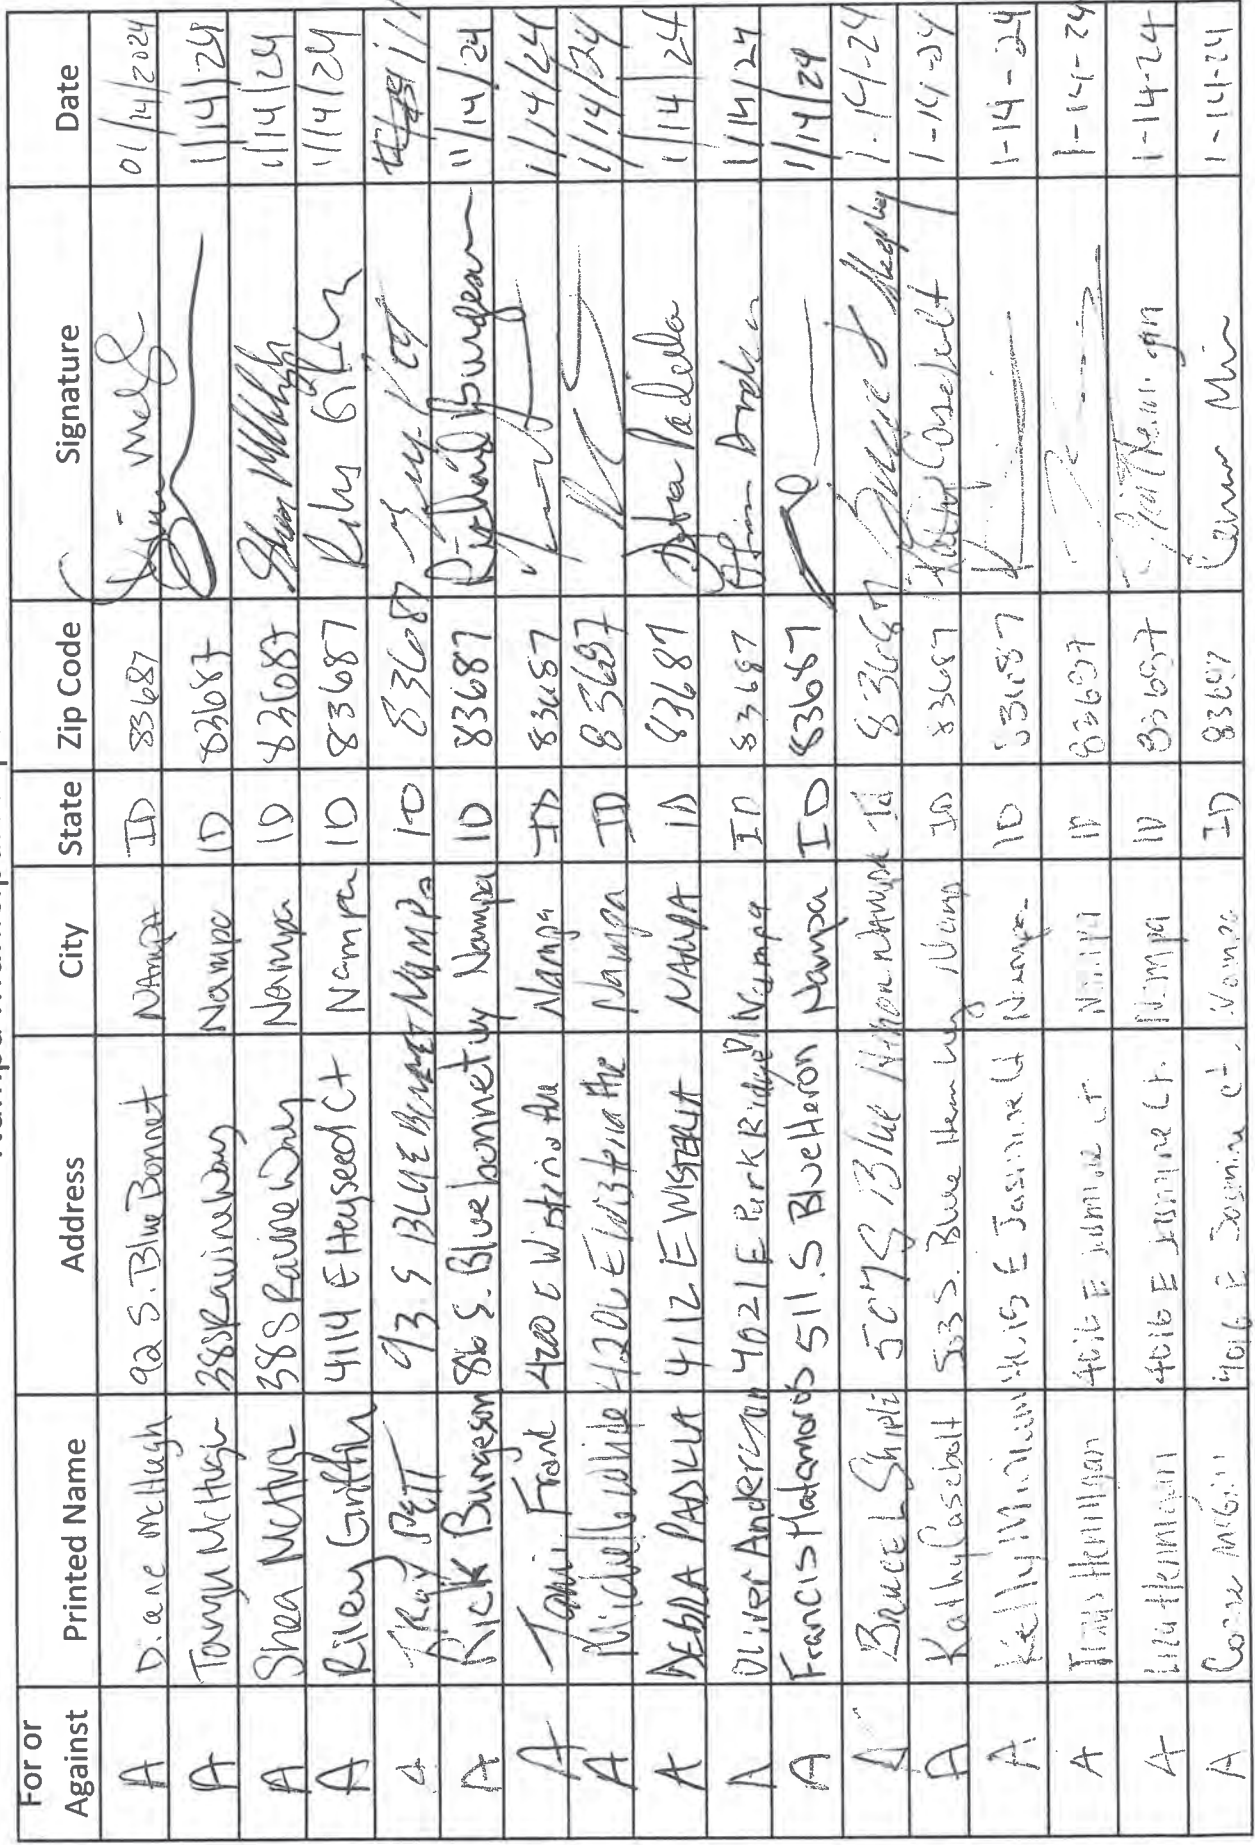 For or Against Printed Name Address City State Zip Code Signature Date
A Diane McHugh 92 S. Blue Bonnet NAMPA ID 83687 01/14/2024
A Tanya McHugh 388 Ravine Way Nampa ID 83687 1/14/24
A Shea McHugh 388 Ravine Way Nampa ID 83687 1/14/24
A Riley Griffin 4114 E Heyseed Ct Nampa ID 83687 1/14/24
A 93 S BLUE Nampa ID 83687
A Rick Burgeson 86 S. Bluebonnet Way Nampa ID 83687 Richard Burgeson 1/14/24
A Frank Nampa ID 83687 1/14/24
A Michelle White 4206 E Nampa ID 83687 1/14/24
A DEBRA PADILLA 4112 E WISTERIA NAMPA ID 83687 Debra Padilla 1/14/24
A Oliver Anderson 4021 E Park Ridge Nampa ID 83687 1/14/24
A Francis Matamoros 511 S Blue Heron Nampa ID 83687 1/14/24
A Bruce L 507 S Blue Heron Nampa Id 83687 1-14-24
A Kathy Casebolt 503 S. Blue Heron Way Nampa ID 83687 Kathy Casebolt 1-14-24
A Kelly E Jasmine Ct Nampa ID 83687 1-14-24
A Hennigan 4016 E Jasmine Ct Nampa ID 83687 1-14-24
A Hennigan 4016 E Jasmine Ct. Nampa ID 83687 Hennigan 1-14-24
A E Jasmine Ct. Nampa ID 83687 1-14-24